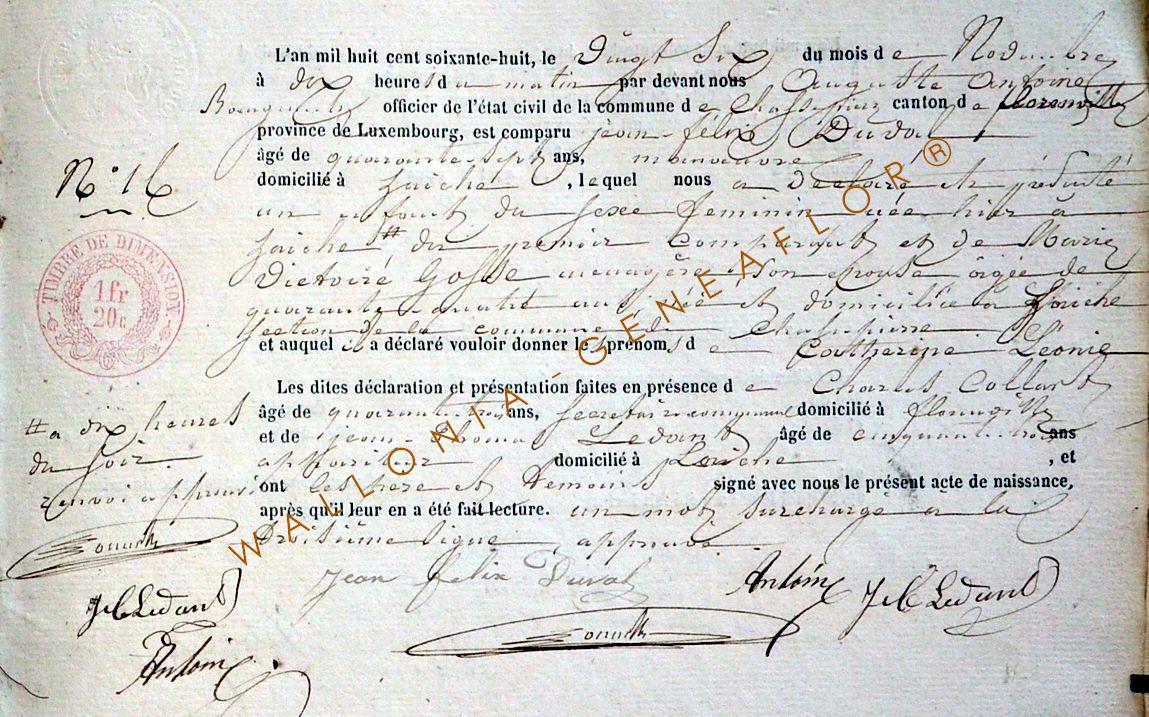 L'an mil huit cent soixante-huit, le Vingt Six du mois de Novembre
à dix heures du matin par devant nous Auguste Antoine
officier de l'état civil de la commune de Chassepierre canton de florenville
province de Luxembourg, est comparu jean-félix Duval
âgé de quarante-sept ans, manoeuvre
domicilié à Laiche, lequel nous a déclaré et présenté
N° 16
un enfant du sexe feminin née hier à
Laiche # du premier comparant et de Marie
Victoire Gosse menagère son epouse âgée de
quarante-quatre ans née et domiciliée à Laiche
section de la commune de Chassepierre
et auquel il a déclaré vouloir donner les prénoms de Catherine Leonie
TIMBRE DE DIMENSION
1 fr
20 c
Les dites déclaration et présentation faites en présence de Charles Collart
âgé de quarante-trois ans, secretaire communal domicilié à florenville
et de jean-Thomas Ledant âgé de cinquante ans
appariteur domicilié à Laiche, et
ont les pere et temoins signé avec nous le présent acte de naissance,
après qu'il leur en a été fait lecture. un mot surchargé à la
troisième ligne approuvé.
# a dix heures
du soir.
renvoi approuvé
Jean félix Duval
Antoine
Ledant
Ledant
Antoine
WALLONIA GENEAFLOR®